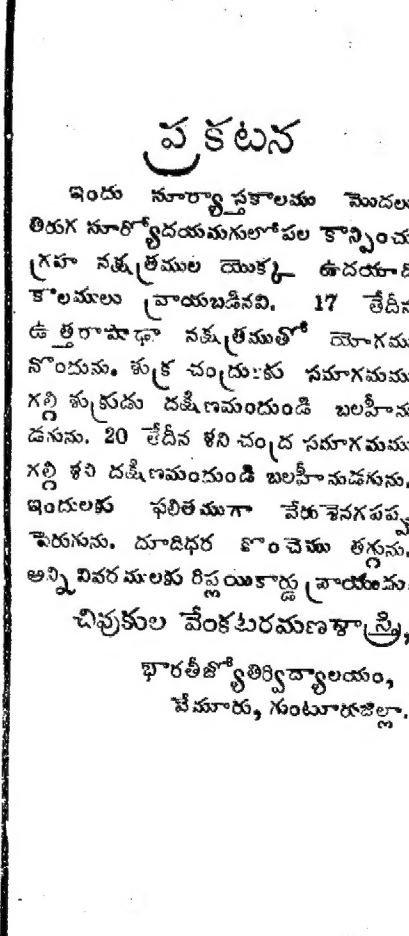 ప్రకటన
ఇందు సూర్యాస్తకాలము మొదలు
తిరుగ సూర్యోదయమగులోపల కాన్పించు
గ్రహ నక్షత్రముల యొక్క ఉదయాది
కాలములు వ్రాయబడినవి. 17 తేదీన
ఉత్తరాషాఢా నక్షత్రముతో యోగము
నొందును. శుక్ర చంద్రులకు సమాగమము
గల్గి శుక్రుడు దక్షిణమందుండి బలహీను
డగును. 20 తేదీన శని చంద్ర సమాగమము
గల్గి శని దక్షిణమందుండి బలహీనుడగును.
ఇందులకు ఫలితముగా వేరుశెనగపప్పు
పెరుగును. దూదిధర కొంచెము తగ్గును.
అన్ని వివరములకు రిప్లయికార్డు వ్రాయుము.
చివుకుల వేంకటరమణశాస్త్రి,
భారతీజ్యోతిర్విద్యాలయం,
వేమూరు, గుంటూరుజిల్లా.